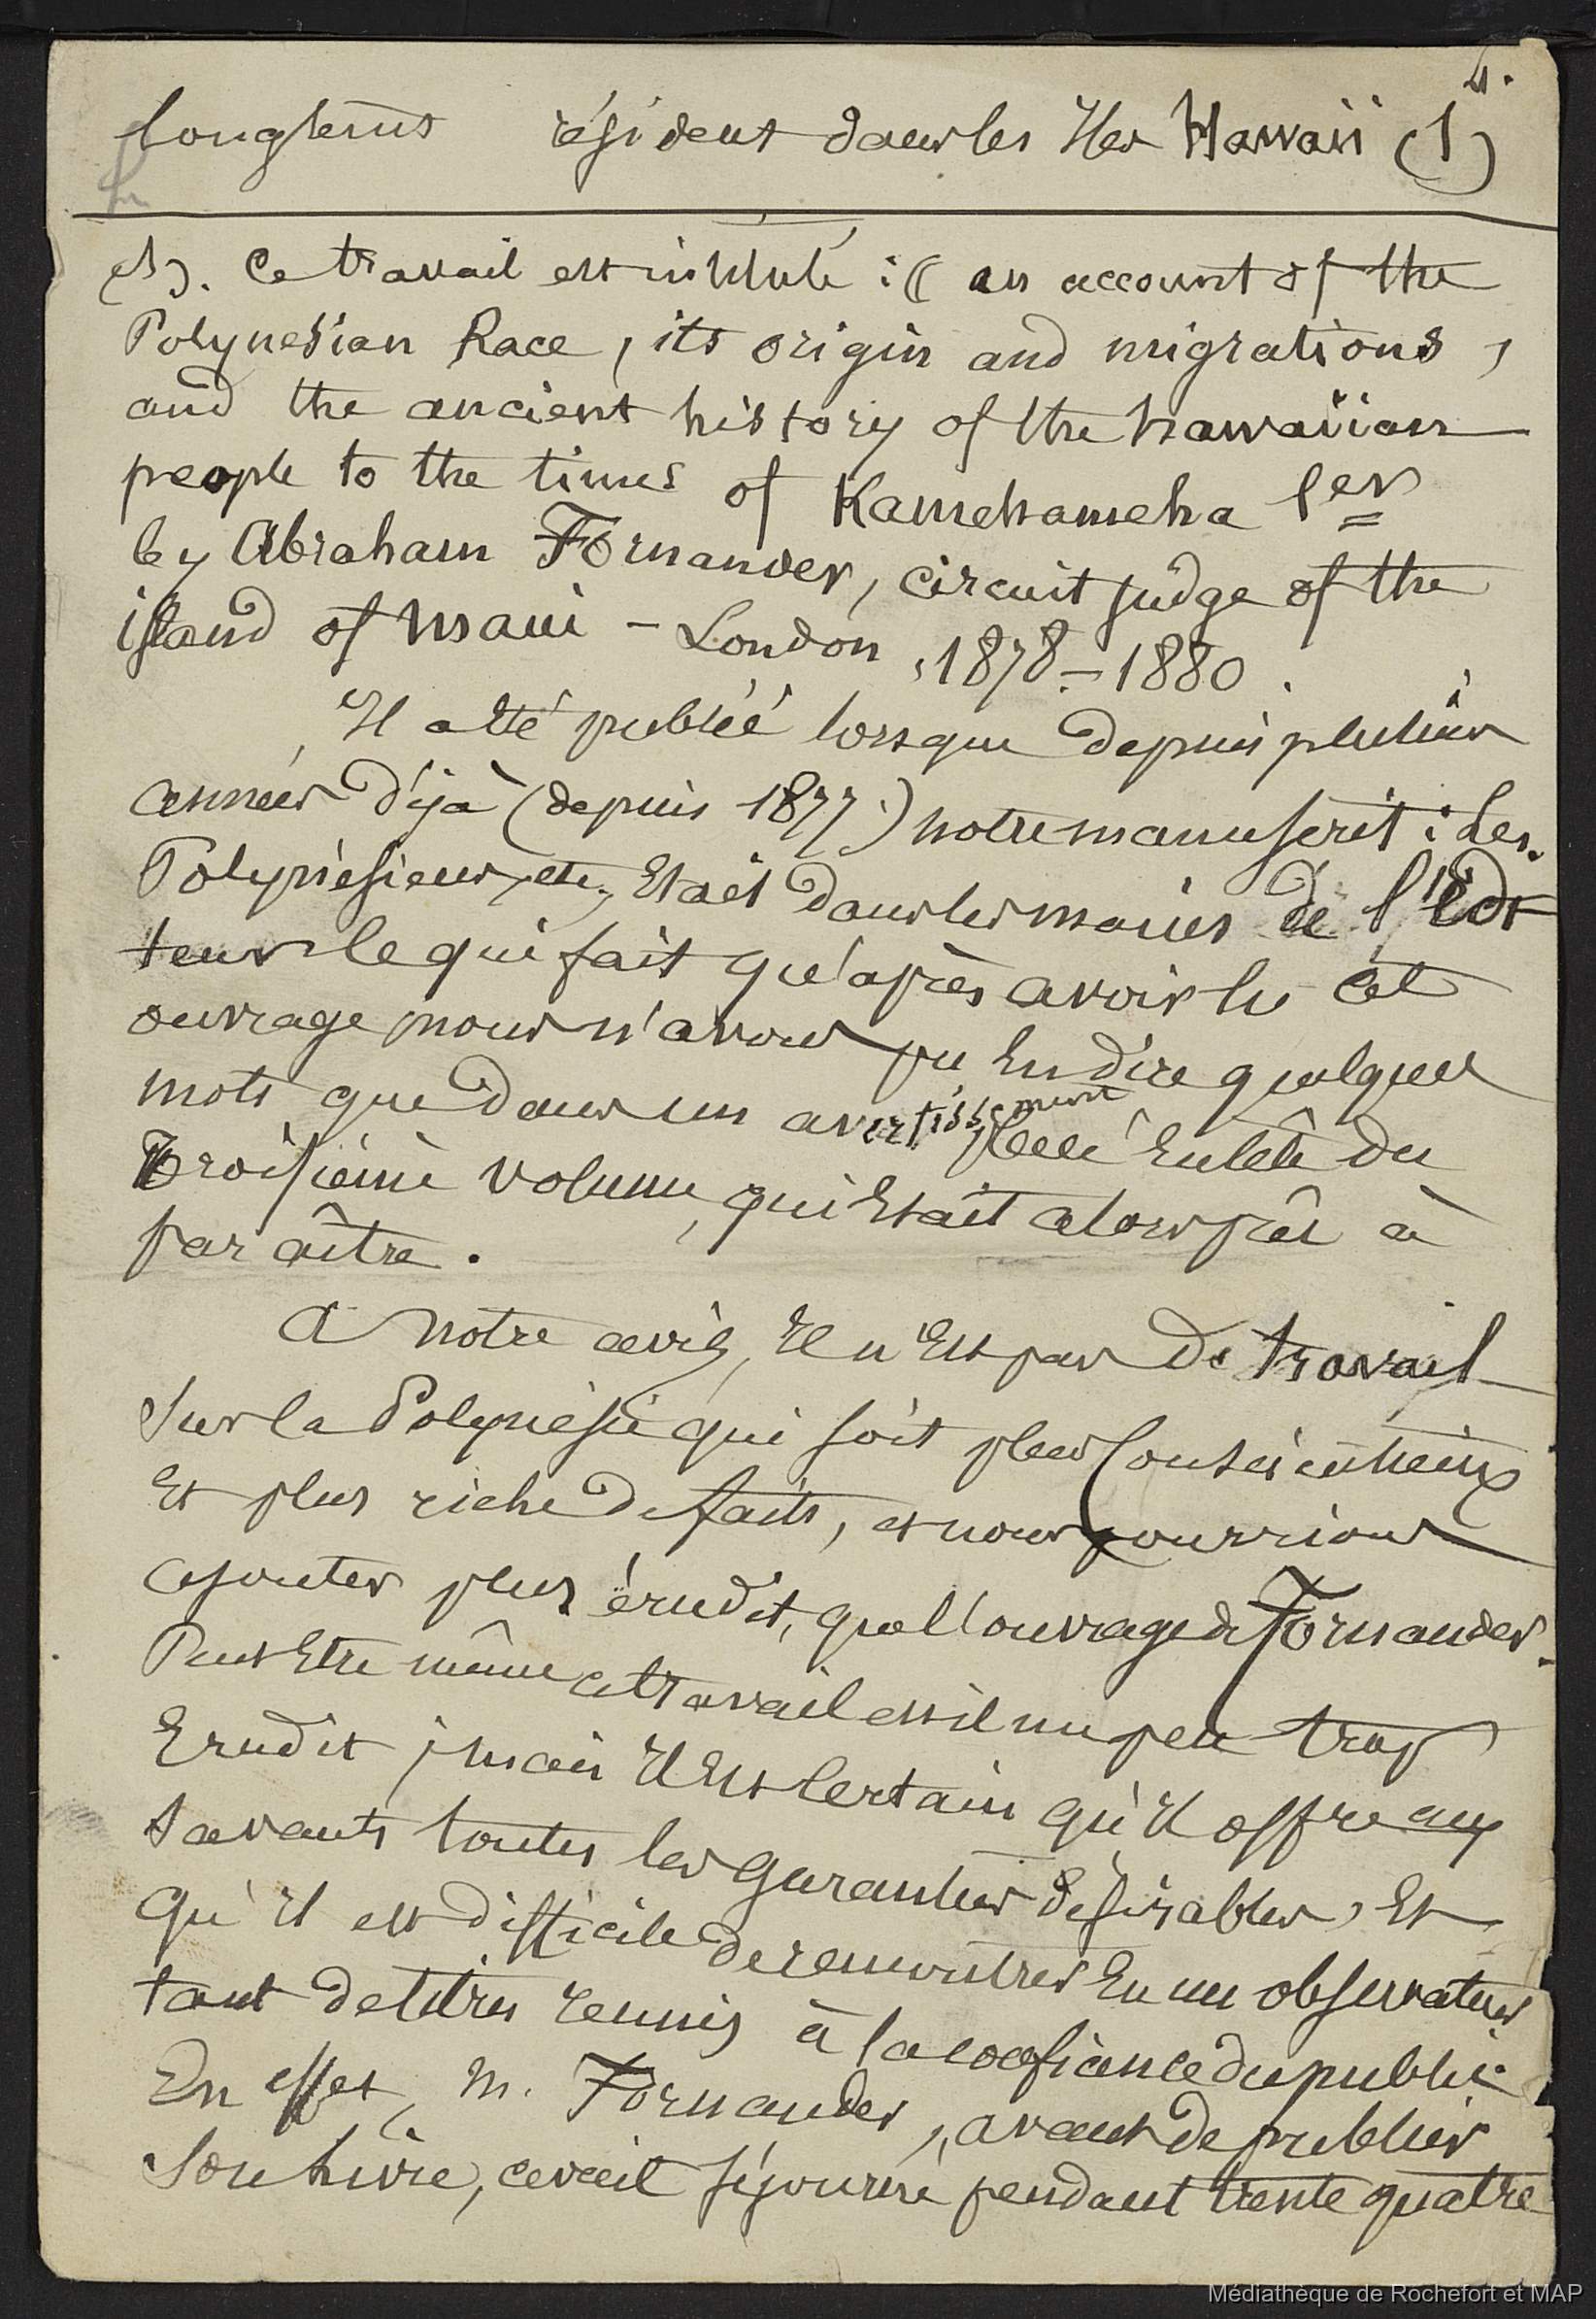 4.
longtems résident dans les Iles Hawaii (1)
(1). Ce travail est intitulé : (( an account of the
Polynesian Race, its origin and migrations,
and the ancient history of the hawaiian
people to the times of Kamehameha 1er
by Abraham Fornander, circuit judge of the
island of Maui - London, 1878-1880.
Il a été publié lorsque depuis plusieurs
années déjà (depuis 1877) notre manuscrit : Les
Polynésiens, etc, était dans les mains de l'Edi
teur le qui fait qu'après avoir lu cet
ouvrage nous n'avons pu en dire quelques
mots que dans un avertissement placé en tête du
Troisième volume, qui était alors prêt à
paraître.
A notre avis, il n'est pas de travail
sur la Polynésie qui soit plus consciencieux
et plus riche de faits, et nous pourrions
ajouter plus érudit, que l'ouvrage de Fornander.
Peut être même ce travail est il un peu trop
érudit ; mais il est certain qu'il offre aux
savants toutes les garanties désirables, et
qu'il est difficile de rencontrer en un observateur
tant de titres réunis à la confiance du public.
En effet, M. Fornander, avant de publier
son livre, avait séjourné pendant trente quatre
Médiathèque de Rochefort et MAP